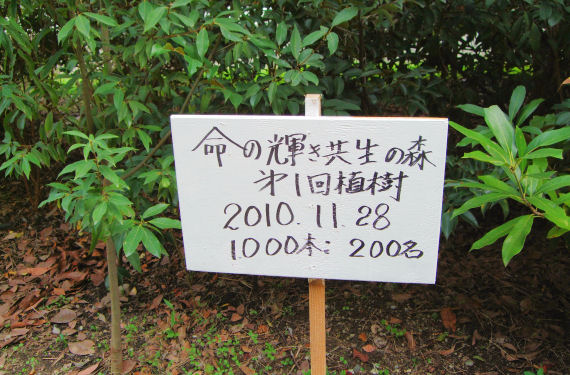 命の輝き共生の森
第1回植樹
2010.11.28
1000本: 200名